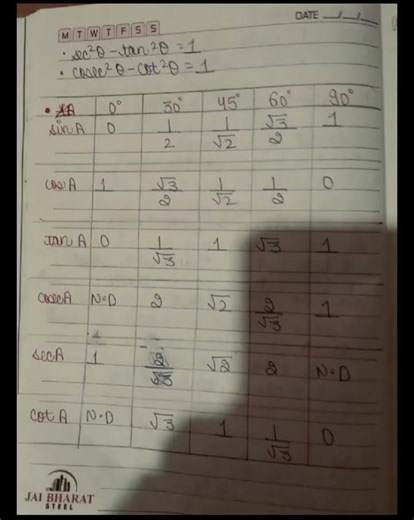 DATE
M T W T F S S
• sec²θ - tan²θ = 1
• cosec²θ - cot²θ = 1
• A 0° 30° 45° 60° 90°
sin A 0 1/2 1/√2 √3/2 1
cos A 1 √3/2 1/√2 1/2 0
tan A 0 1/√3 1 √3 1
cosec A N·D 2 √2 2/√3 1
sec A 1 2/√3 √2 2 N·D
cot A N·D √3 1 1/√3 0
JAI BHARAT
STEEL